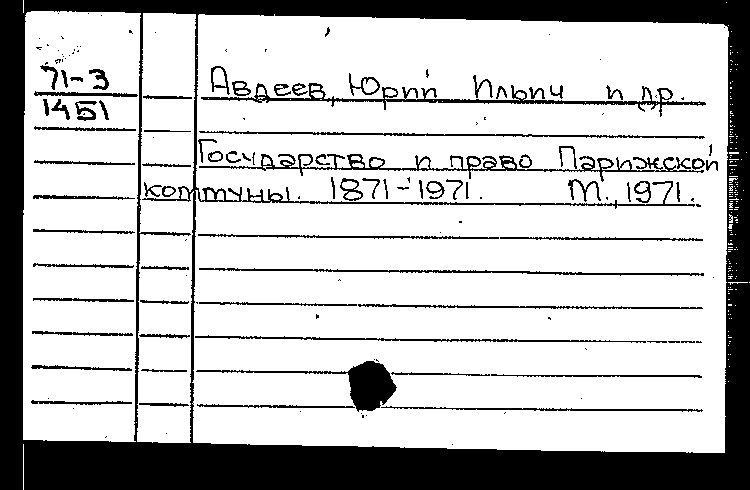 71-3
1451
Авдеев, Юрий Ильич и др.
Государство и право Парижской
коммуны. 1871-1971. М., 1971.